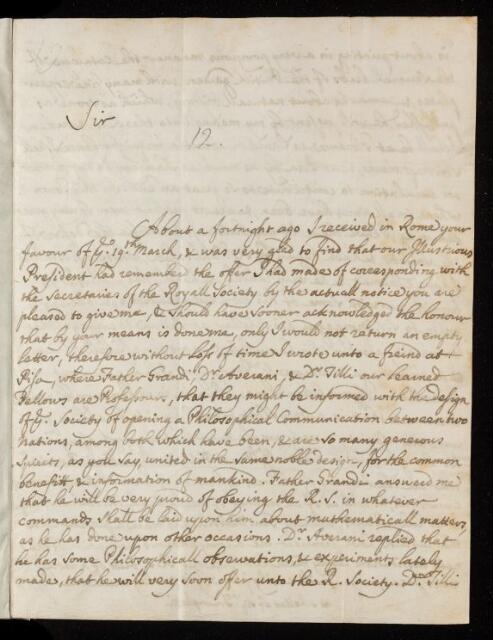 Sir
12.
About a fortnight ago I received in Rome your
favour of ye. 19th March, & was very glad to find that our Illustrious
President had remember the offer I had made of corresponding with
the Secretaries of the Royall Society by the actuall notice you are
pleased to give me, & should have sooner acknowledged the honour
that by your means is done me, only I would not return an empty
letter, therefore without loss of time I wrote unto a freind at
Pisa, where Father Grandi, Dr. Averani, & Dr. Tilli our learned
Fellows are Professours, that they might be informed with the design
of ye. Society of opening a Philosophical Communication between two
Nations, among both which have been, & are so many generous
Spirits, as you say, united in the same noble design, for the common
benefitt & information of mankind. Father Grandi answerd me
that he will be very proud of obeying the R. S. in whatever
commands shall be laid upon him about mathematicall matters,
as he has done upon other occasions. Dr. Averani replied that
he has some Philosophicall observations, & experiments lately
made, that he will very soon offer unto the R. Society. Dr. Tilli